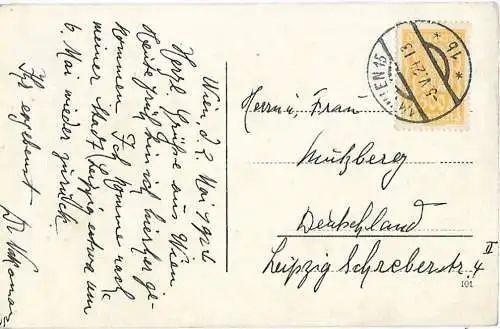 Wien, d. 2. Mai 1924
Herzl. Grüße aus Wien
Heute früh bin ich hierher ge-
kommen. Ich komme nach
meiner Stadt Leipzig etwa am
6. Mai wieder zurück.
Ihr ergebenst
Dr
WIEN 15
1b
Herrn u. Frau
Mützberg
Deutschland
Leipzig Schreberstr. 4 II
101